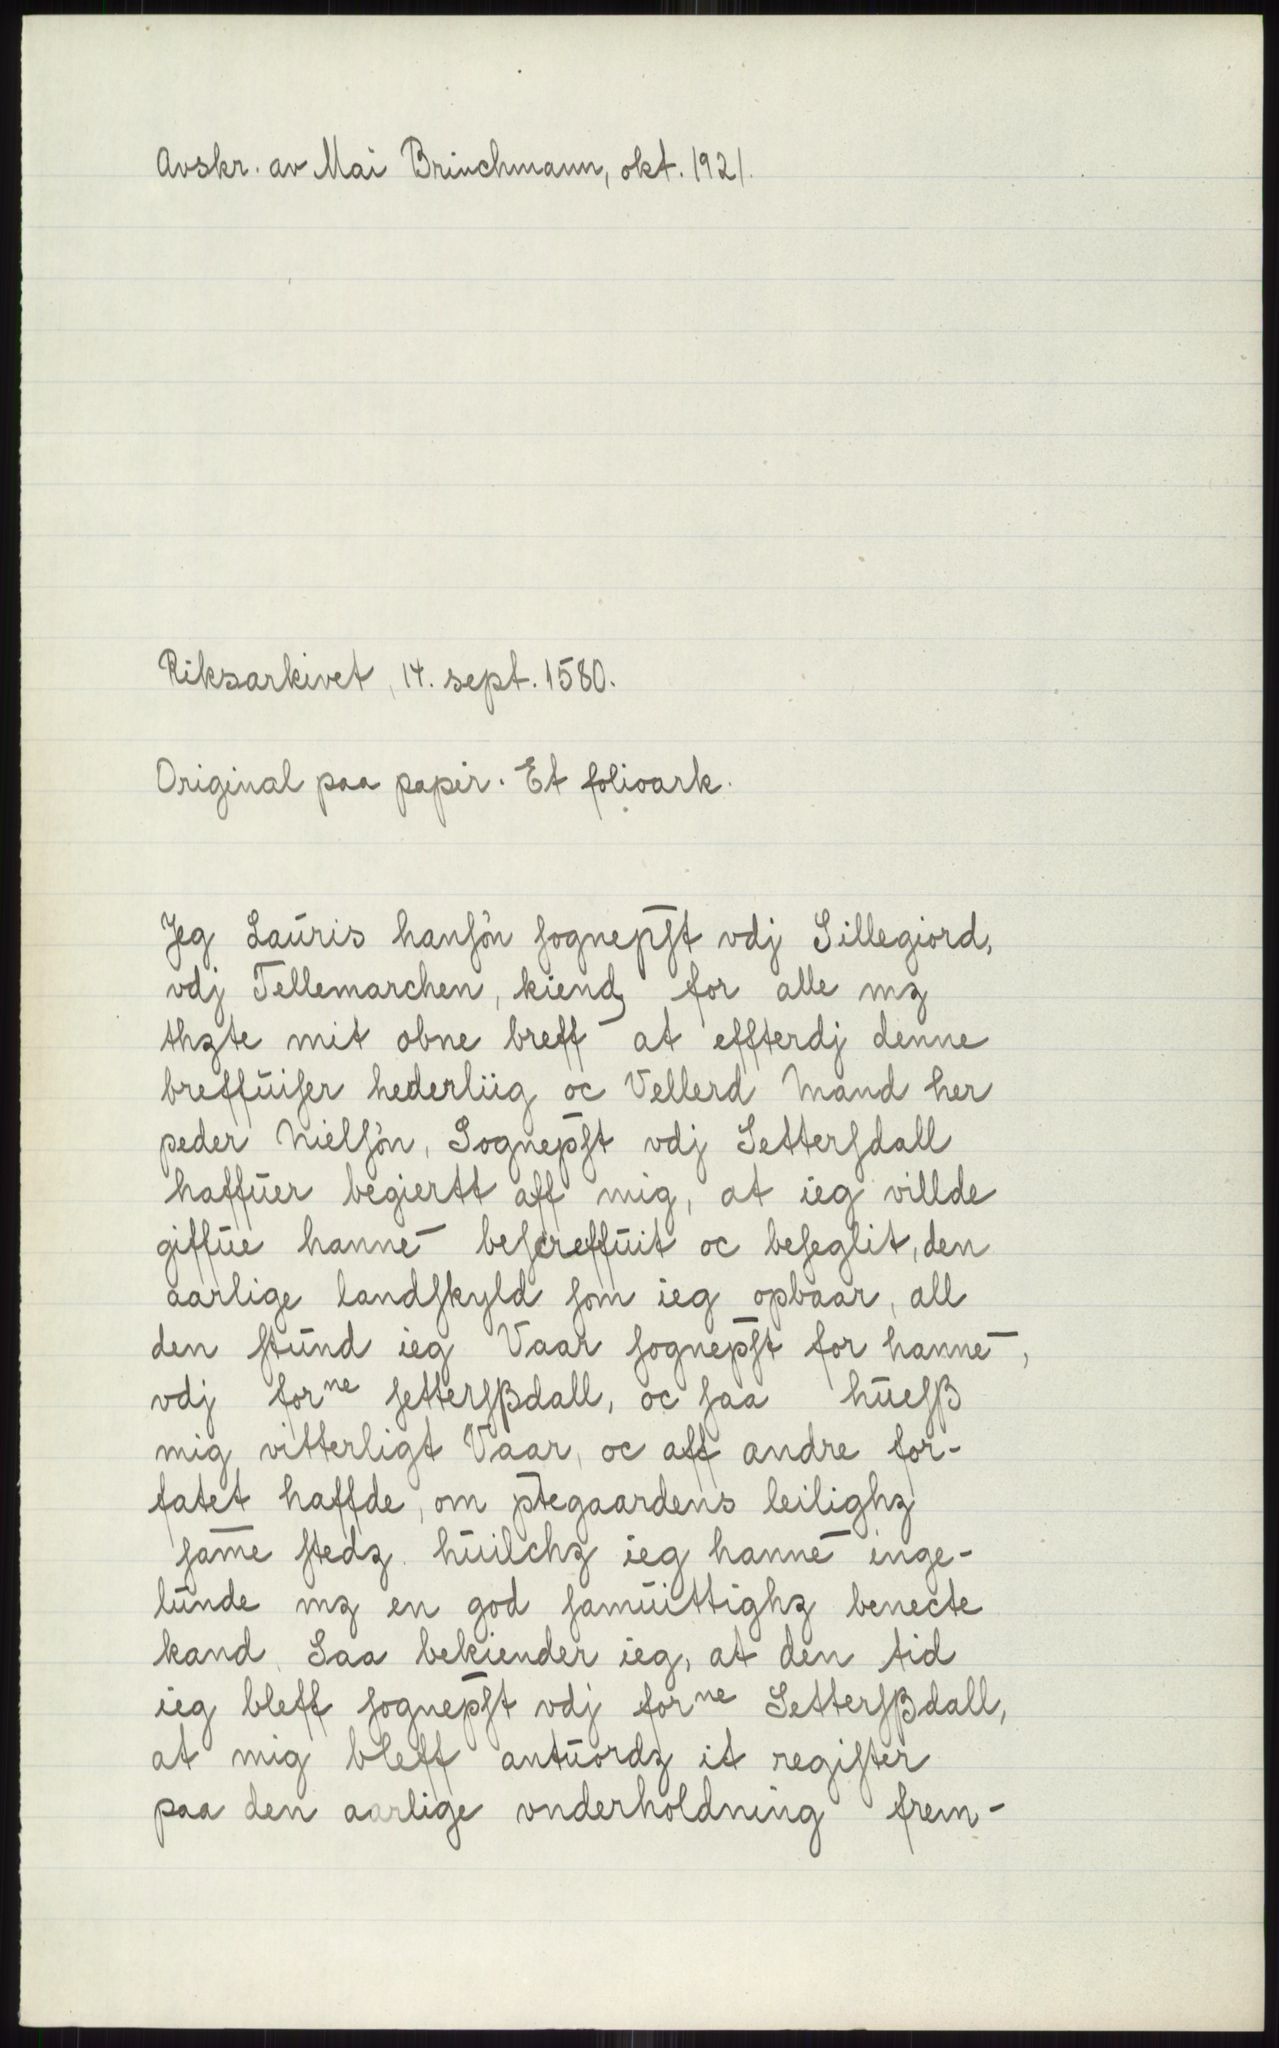 Avskr. av Mai Brinchmann, okt. 1921.
Riksarkivet, 14. sept. 1580.
Original paa papir. Et folioark.
Jeg Lauris hanſøn ſognep̄ſt vdj Sillegiord,
vdj Tellemarchen, kiendꝫ for alle mꝫ
thꝫte mit obne breff at effterdj denne
breffūiſer hederliig oc Vellerd Mand her
peder Nielſøn, Sognep̄ſt vdj Setterſdall
haffūer begiertt aff mig, at ieg villde
giffūe hannē beſcreffūit oc beſeglit, den
aarlige landſkyld ſom ieg opbaar, all
den ſtūnd ieg Vaar ſognep̄ſt for hannē,
vdj forⁿᵉ ſetterſβdall, oc ſaa hūeſβ
mig vitterligt Vaar, oc aff andre for-
fatet haffde, om p̄tegaardens leilighꝫ
ſam̄e ſtedꝫ. hūilchꝫ ieg hannē inge-
lūnde mꝫ en god ſamūittighꝫ benecte
kand. Saa bekiender ieg, at den tid
ieg bleff ſognep̄ſt vdj forⁿᵉ Setterſβdall,
at mig bleff antūordꝫ it regiſter
paa den aarlige vnderholdning frem-